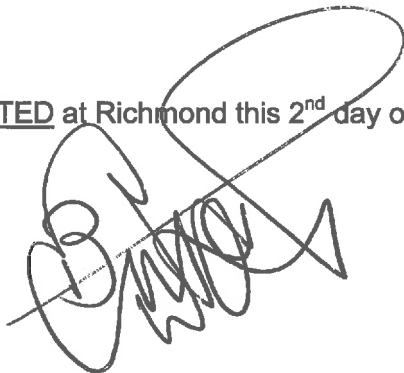 TED at Richmond this 2nd day o